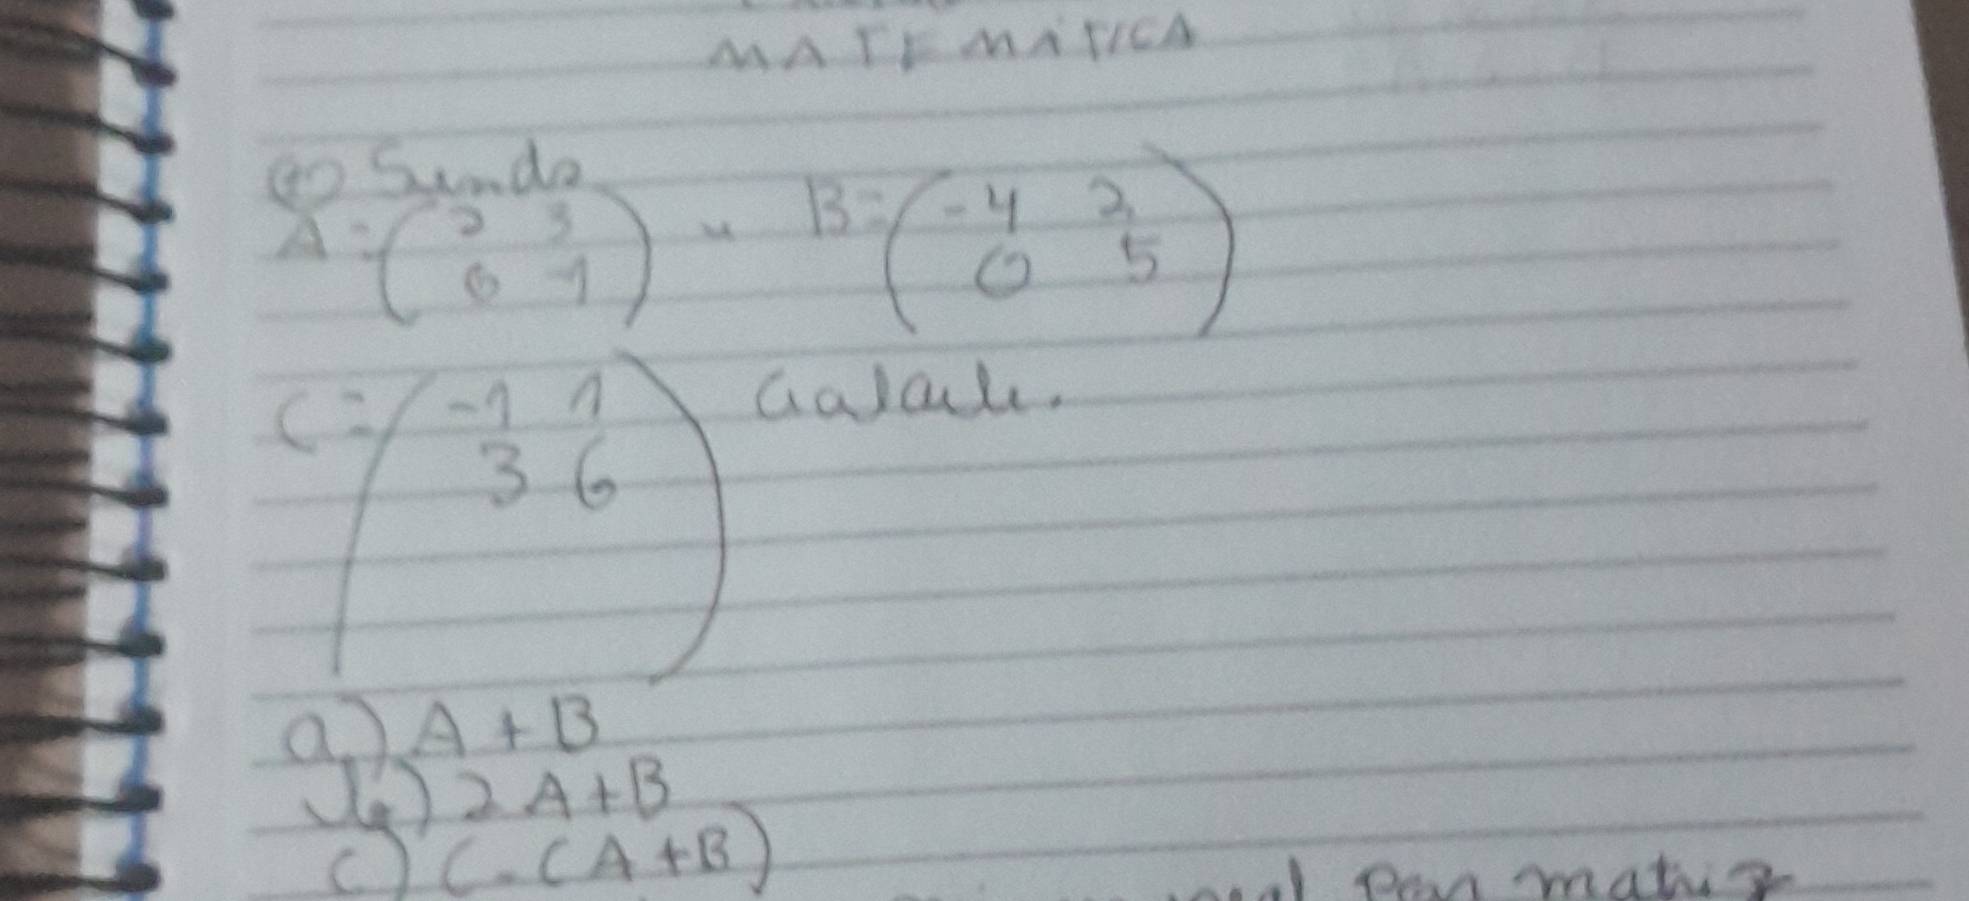 MATEMÁTICA
Sendo
A = ( 2 3
0 -1 ) e B = ( -4 2
0 5 )
C = ( -1 1
3 6 ) Calcule.
a) A + B
b) 2A + B
c) C - (A + B)
por matriz